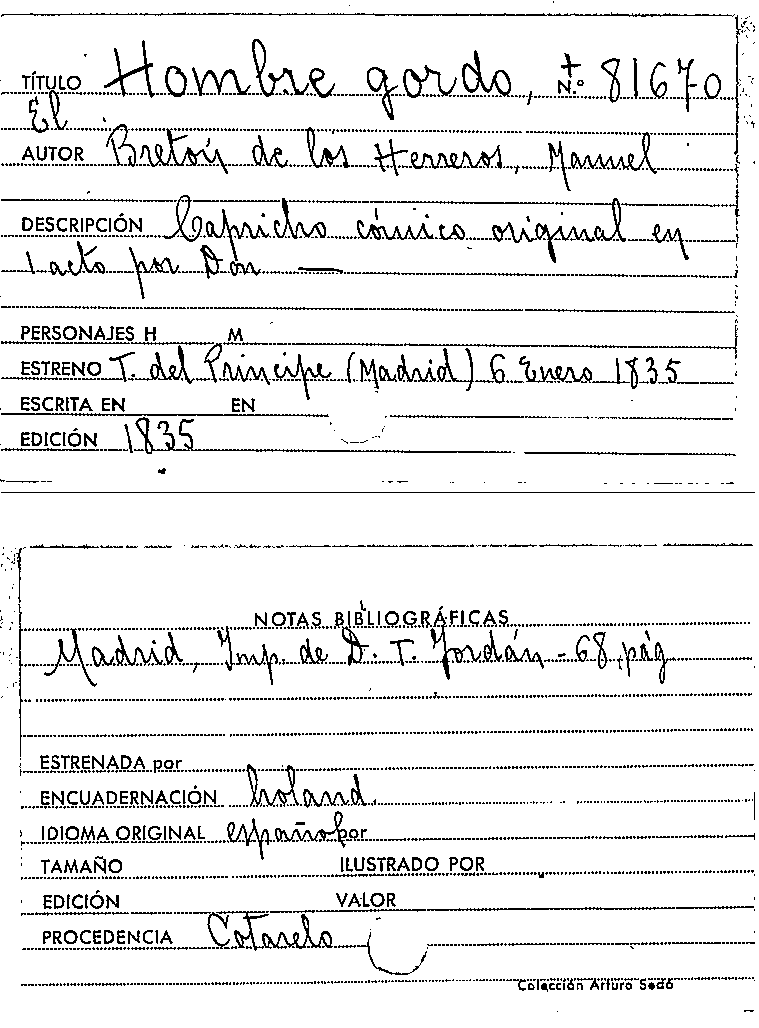 TÍTULO Hombre gordo, N.º 81670
El
AUTOR Bretón de los Herreros, Manuel
DESCRIPCIÓN Capricho cómico original en
1 acto por Don —
PERSONAJES H M
ESTRENO T. del Príncipe (Madrid) 6 Enero 1835
ESCRITA EN EN
EDICIÓN 1835
NOTAS BIBLIOGRÁFICAS
Madrid, Imp. de D. T. Jordán - 68 pág
ESTRENADA por
ENCUADERNACIÓN holand.
IDIOMA ORIGINAL español por
TAMAÑO ILUSTRADO POR
EDICIÓN VALOR
PROCEDENCIA Cotarelo
Colección Arturo Sedó